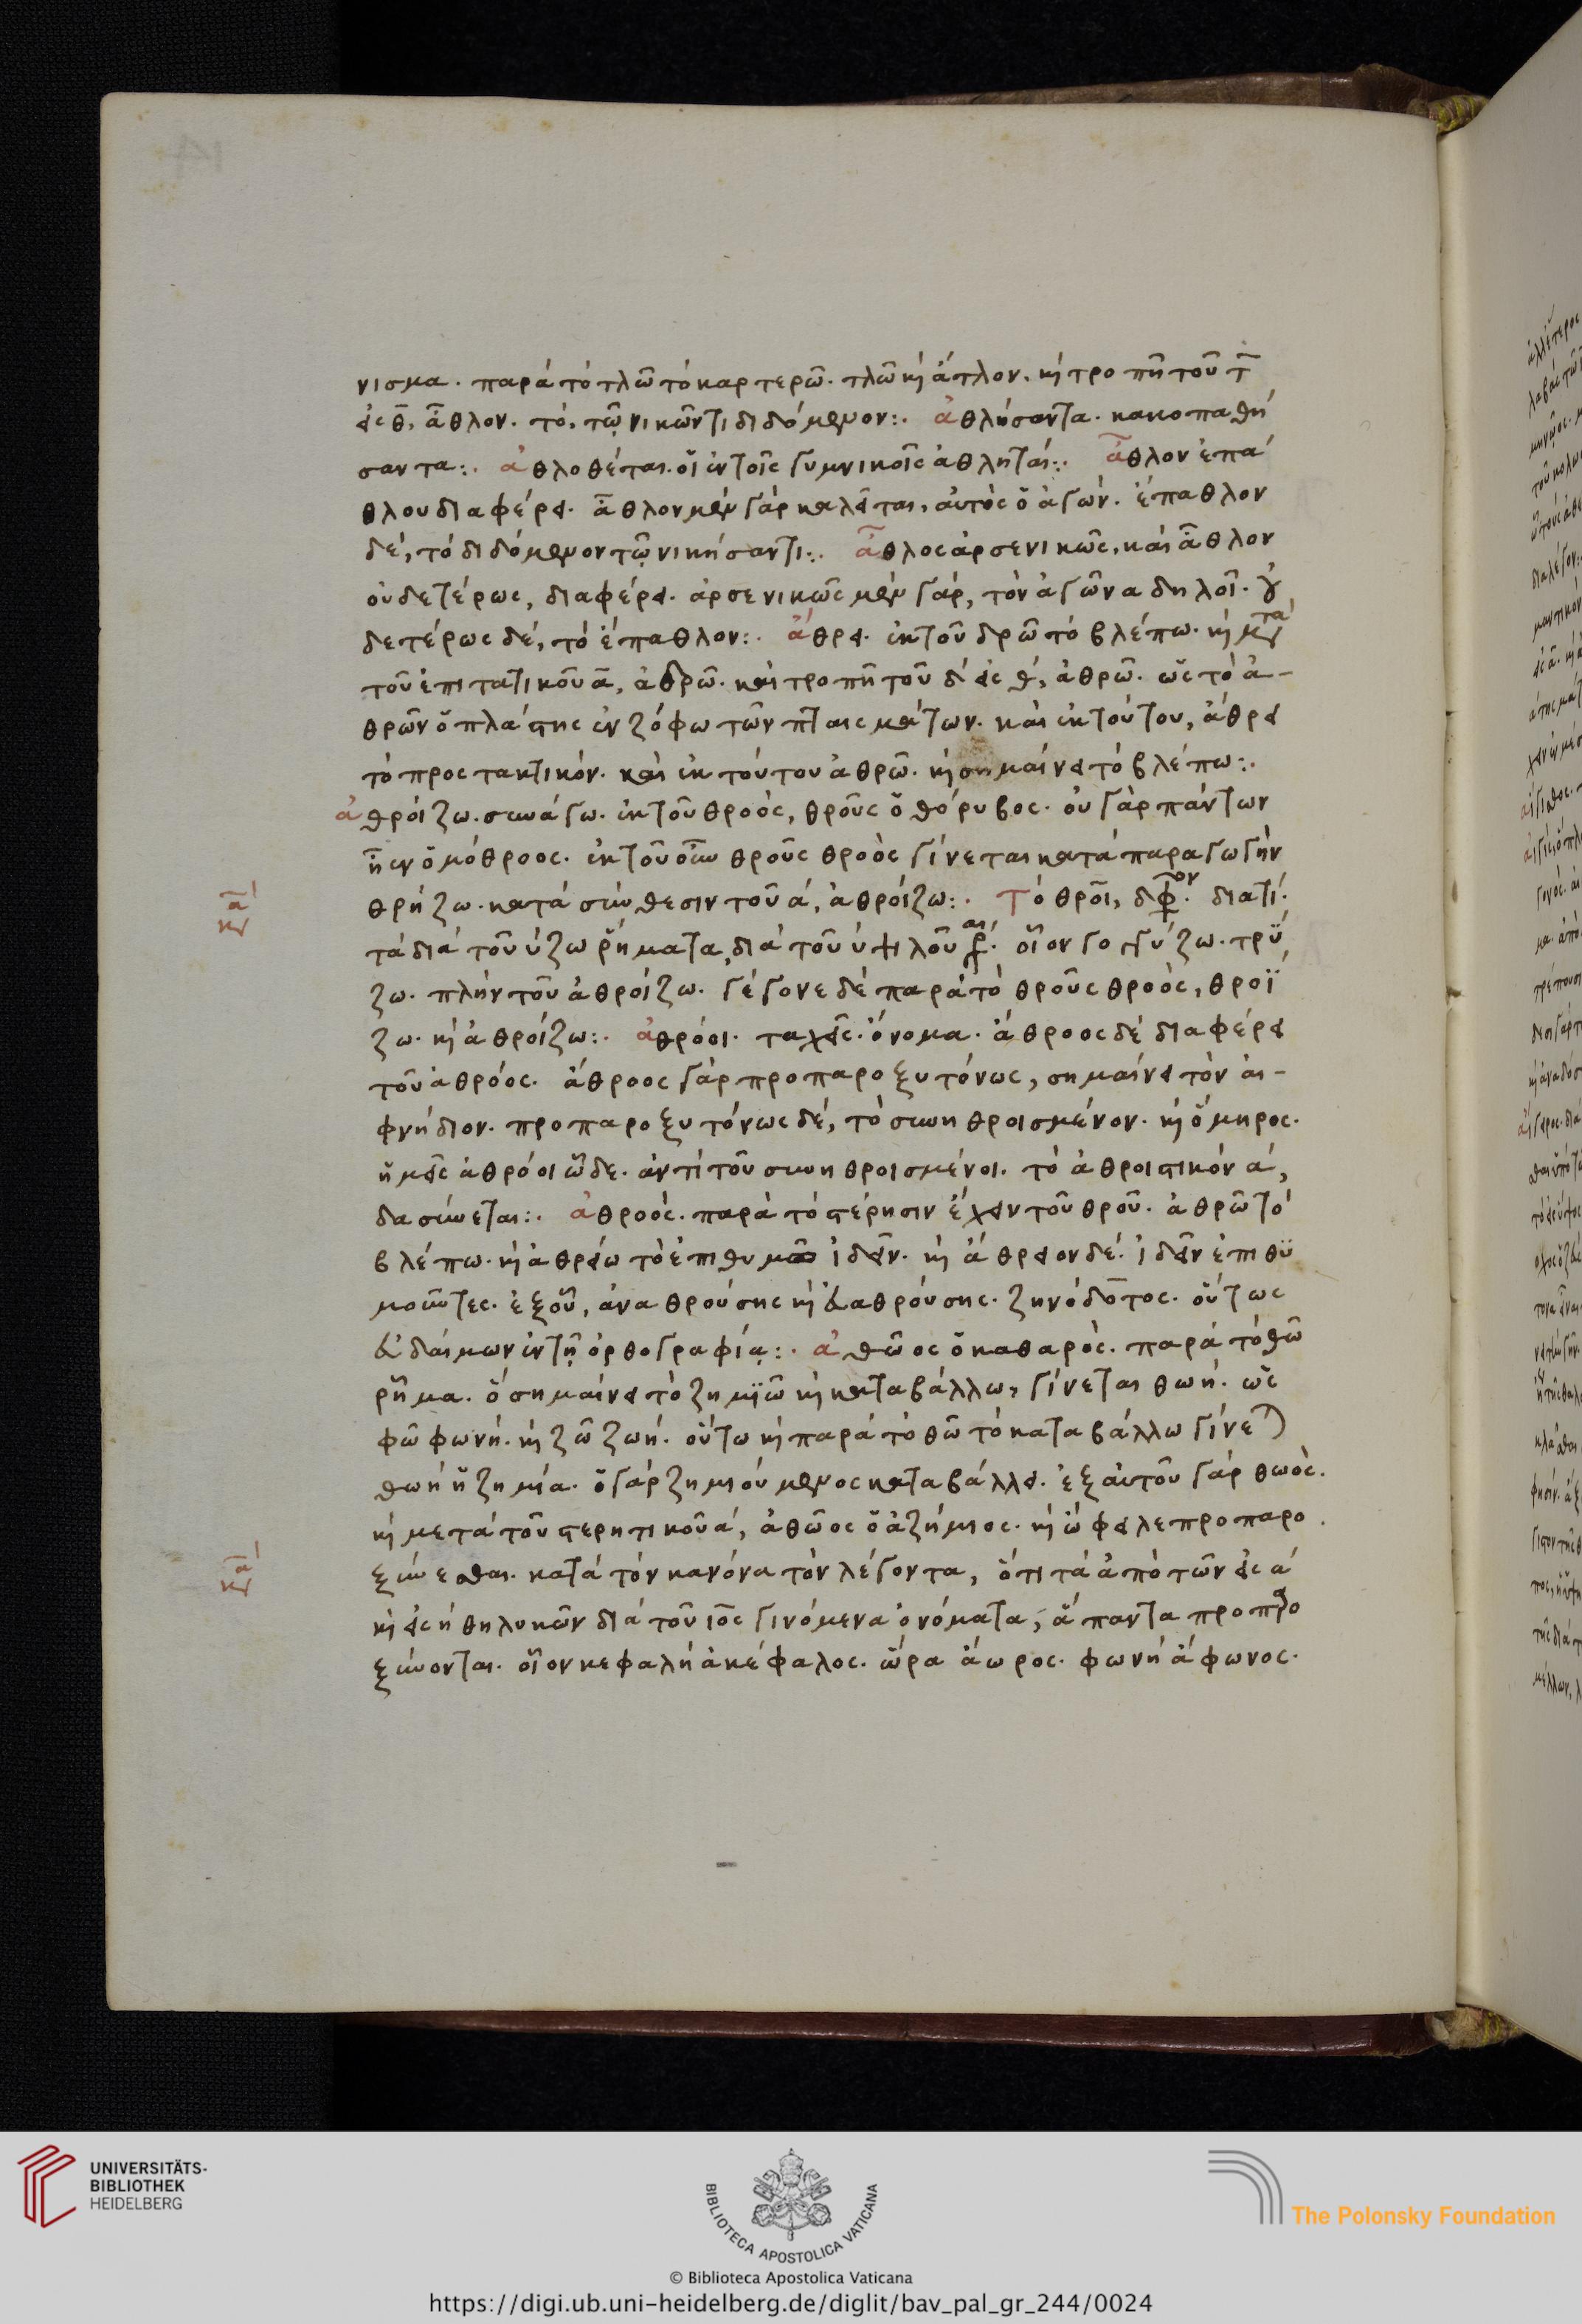 νισμα. παρά τὸ τλῶ τὸ καρτερῶ. τλῶ κὶ ἄτλον. κὶ τροπῆ τοῦ τ̅
εἰς θ̅, ἆθλον. τὸ, τῶ νικῶντι διδόμενον:. ἀθλήσαντα. κακοπαθή
σαντα:. ἀθλοθέται. οἵ ἐν τοῖς γυμνικοῖς ἀθληταί:. ἆθλον ἐπά
θλου διαφέρει. ἆθλον μὲν γάρ καλεῖται, αὐτὸς ὅ ἀγών. ἔπαθλον
δέ, τὸ διδόμενον τῶ νικήσαντι:. ἆθλος ἀρσενικῶς, καὶ ἆθλον
οὐδετέρως, διαφέρει. ἀρσενικῶς μὲν γάρ, τὸν ἀγῶνα δηλοῖ. οὐ
δετέρως δέ, τὸ ἔπαθλον:. ἄθρει. ἐκ τοῦ δρῶ τὸ βλέπω. κὶ μετὰ
τοῦ ἐπιτατικοῦ α̅, ἀδρῶ. καὶ τροπῆ τοῦ δ́ εἰς θ́, ἀθρῶ. ὡς τὸ ἀ-
θρῶν ὅ πλάστης ἐν ζόφω τῶν πταισμάτων. καὶ ἐκ τούτου, ἄθρει
τὸ προστακτικόν. καὶ ἐκ τούτου ἀθρῶ. κὶ σημαίνει τὸ βλέπω:.
ἀθροίζω. συνάγω. ἐκ τοῦ θροὸς, θροῦς ὅ θόρυβος. οὐ γὰρ πάντων
ἦεν ὅμόθροος. ἐκ τοῦ οὖν θροῦς θροὸς γίνεται κατὰ παραγωγὴν
θρήζω. κατὰ σύνθεσιν τοῦ ά, ἀθροίζω:. Τὸ θροῖ, δφ̅ον. διατί.
τὰ διὰ τοῦ ύζω ῥήματα, διὰ τοῦ ὑψιλοῦ γρ́αι. οἷον γογγύζω. τρύ
ζω. πλὴν τοῦ ἀθροίζω. γέγονε δὲ παρὰ τὸ θροῦς θροὸς, θροΐ
ζω. κὶ ἀθροίζω:. ἀθρόοι. ταχεῖς. ὄνομα. ἄθροος δὲ διαφέρει
τοῦ ἀθρόος. ἄθροος γὰρ προπαροξυτόνως, σημαίνει τὸν αἰ-
φνήδιον. προπαροξυτόνως δέ, τὸ συνηθροισμένον. κὶ ὅμηρος.
ἥμεῖς ἀθρόοι ὧδε. ἀντὶ τοῦ συνηθροισμένοι. τὸ ἀθροιστικὸν ά,
δασύνεται:. ἀθροὸς. παρὰ τὸ στέρησιν ἔχειν τοῦ θροῦ. ἀθρῶ τὸ
βλέπω. κὶ ἀθρείω τὸ ἐπιθυμῶ ἰδεῖν. κὶ ἄθρειον δέ. ἰδεῖν ἐπιθυ
μοῦντες. ἐξ οὗ, ἀναθρούσης κὶ διαθρούσης. ζηνόδοτος. οὕτως
εὐδαίμων ἐν τῆ ὀρθογραφία:. ἀθῶος ὅ καθαρὸς. παρὰ τὸ θῶ
ρῆμα. ὅ σημαίνει τὸ ζημιῶ κὶ καταβάλλω, γίνεται θωή. ὡς
φῶ φωνή. κὶ ζῶ ζωή. οὕτω κὶ παρὰ τὸ θῶ τὸ καταβάλλω γίνε)
θωὴ ἥ ζημία. ὅ γάρ ζημιούμενος καταβάλλει. ἐξ αὐτοῦ γάρ θωὸς.
κὶ μετὰ τοῦ στερητικοῦ ά, ἀθῶος ὅ ἀζήμιος. κὶ ὤφειλε προπαρο
ξύνεσθαι. κατὰ τὸν κανόνα τὸν λέγοντα, ὅτι τὰ ἀπὸ τῶν εἰς ά
κὶ εἰς ή θηλυκῶν διὰ τοῦ ιος γινόμενα ὀνόματα, ἅπαντα προπρο
ξύνονται. οἷον κεφαλή ἀκέφαλος. ὥρα ἄωρος. φωνή ἄφωνος.
UNIVERSITÄTS-
BIBLIOTHEK
HEIDELBERG
BIBLIOTECA APOSTOLICA VATICANA
The Polonsky Foundation
© Biblioteca Apostolica Vaticana
https://digi.ub.uni-heidelberg.de/diglit/bav_pal_gr_244/0024